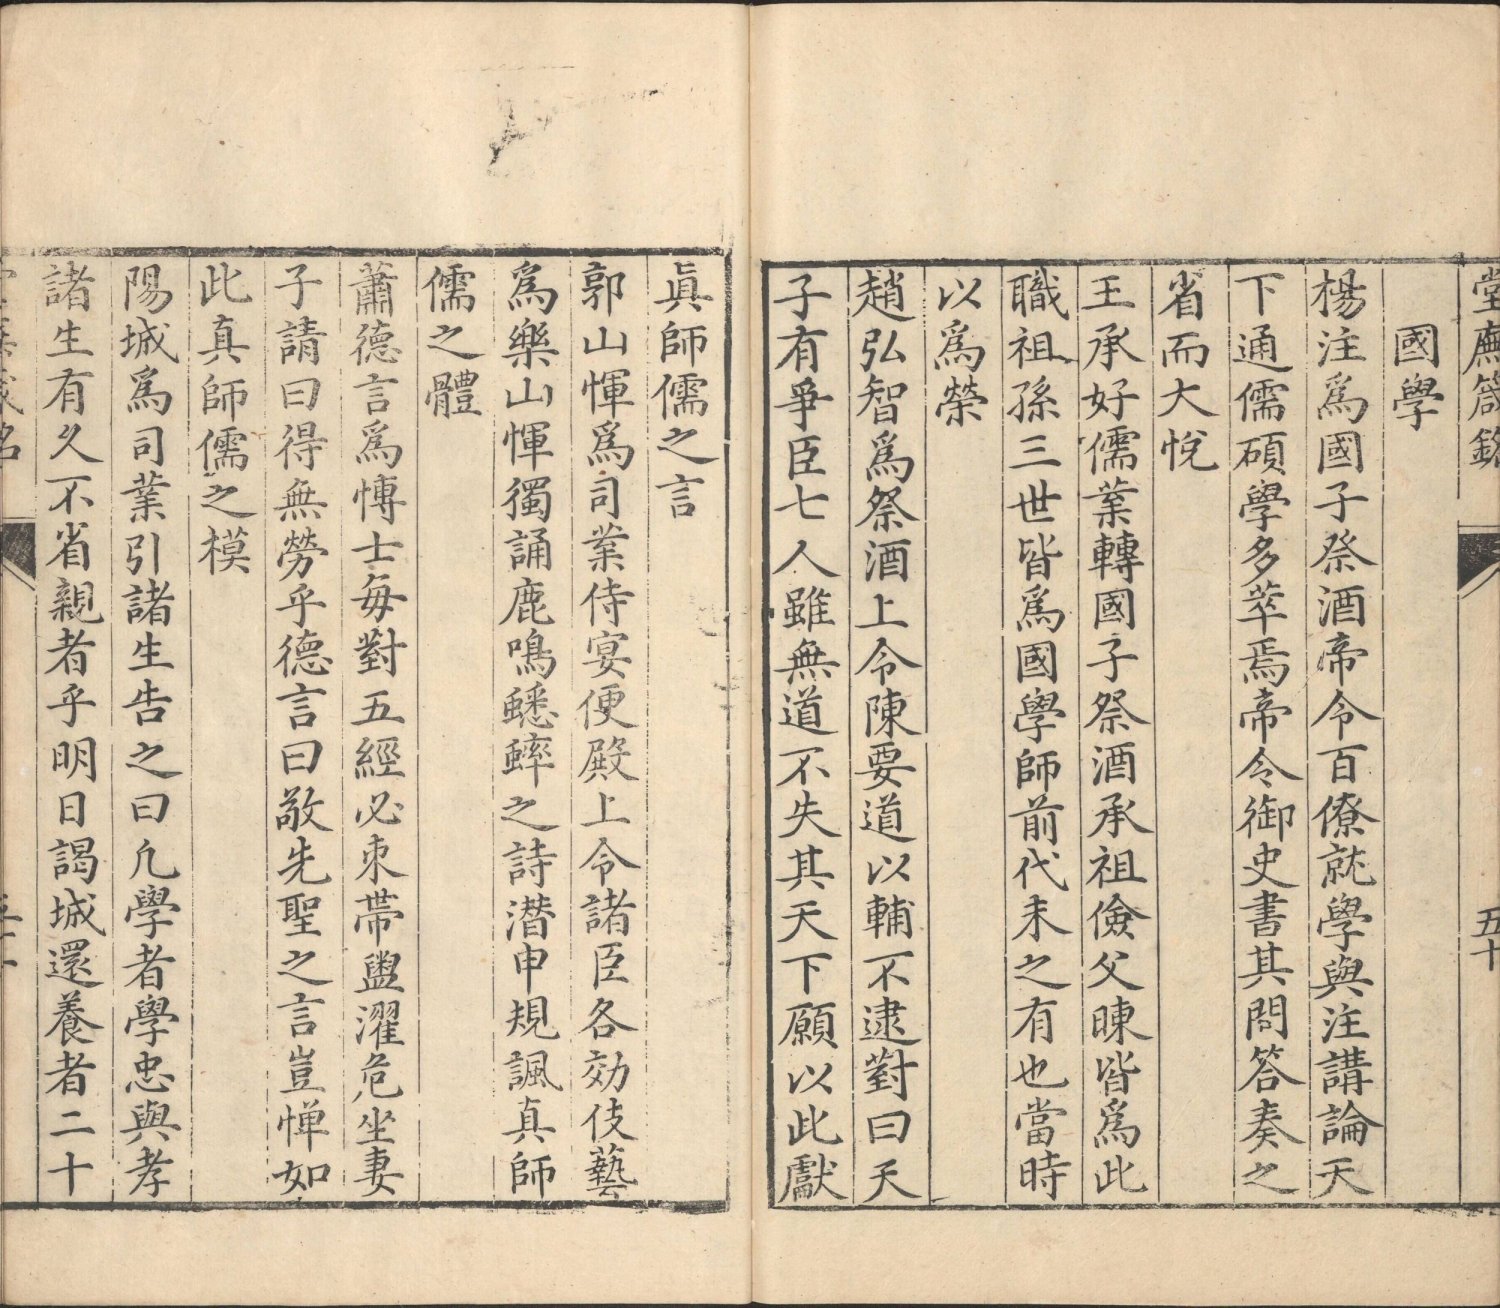 堂廡箴銘
五十
國學
楊注爲國子祭酒帝令百僚就學與注講論天
下通儒碩學多萃焉帝令御史書其問答奏之
省而大悅
王承好儒業轉國子祭酒承祖儉父暕皆爲此
職祖孫三世皆爲國學師前代未之有也當時
以爲榮
趙弘智爲祭酒上令陳要道以輔不逮對曰天
子有爭臣七人雖無道不失其天下願以此獻
眞師儒之言
郭山惲爲司業侍宴便殿上令諸臣各効伎藝
爲樂山惲獨誦鹿鳴蟋蟀之詩潛申規諷真師
儒之體
蕭德言爲愽士每對五經必束帶盥濯危坐妻
子請曰得無勞乎德言曰敬先聖之言豈惮如
此真師儒之模
陽城爲司業引諸生告之曰凢學者學忠與孝
諸生有久不省親者乎明日謁城還養者二十